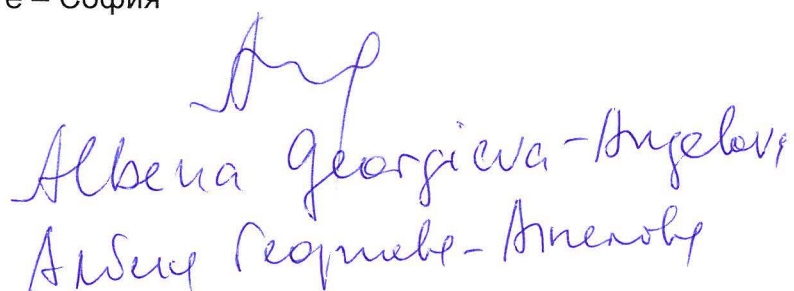 е – София
Albena Georgieva-Angelova
Албена Георгиева-Ангелова